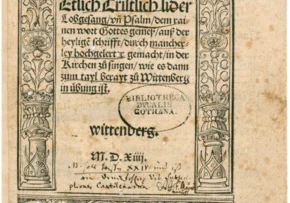 Etlich Cristlich lider
Lobgesang/vñ Psalm/dem rai
nen wort Gottes gemeß/auß der
heyligẽ schrifft/durch mancher
ley hochgelerter gemacht/in der
Kirchen zů singen/wie es dann
zum tayl berayt zů Wittenberg
in übung ist.
BIBLIOTHECA
DUCALIS
GOTHANA.
wittenberg.
M. D. Xiiij.